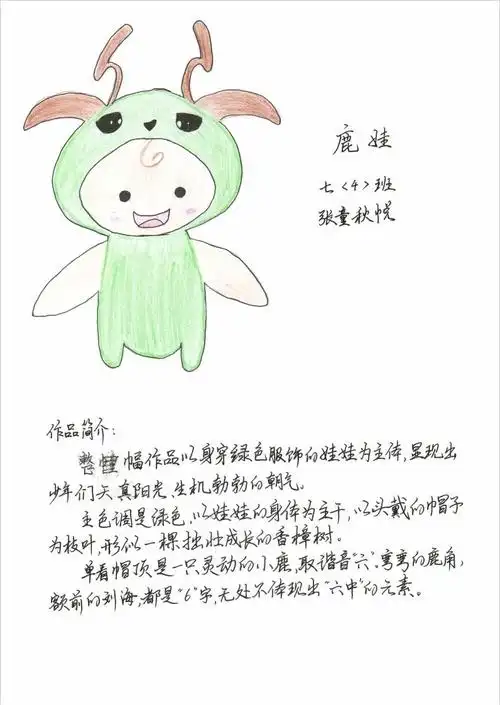 鹿娃
七<4>班
张童秋悦
作品简介:
整幅作品以身穿绿色服饰的娃娃为主体,显现出
少年们天真阳光、生机勃勃的朝气。
主色调是绿色,以娃娃的身体为主干,以头戴的帽子
为枝叶,形似一棵拙壮成长的香樟树。
单看帽顶是一只灵动的小鹿,取谐音“六”。弯弯的鹿角,
额前的刘海,都是“6”字,无处不体现出“六中”的元素。